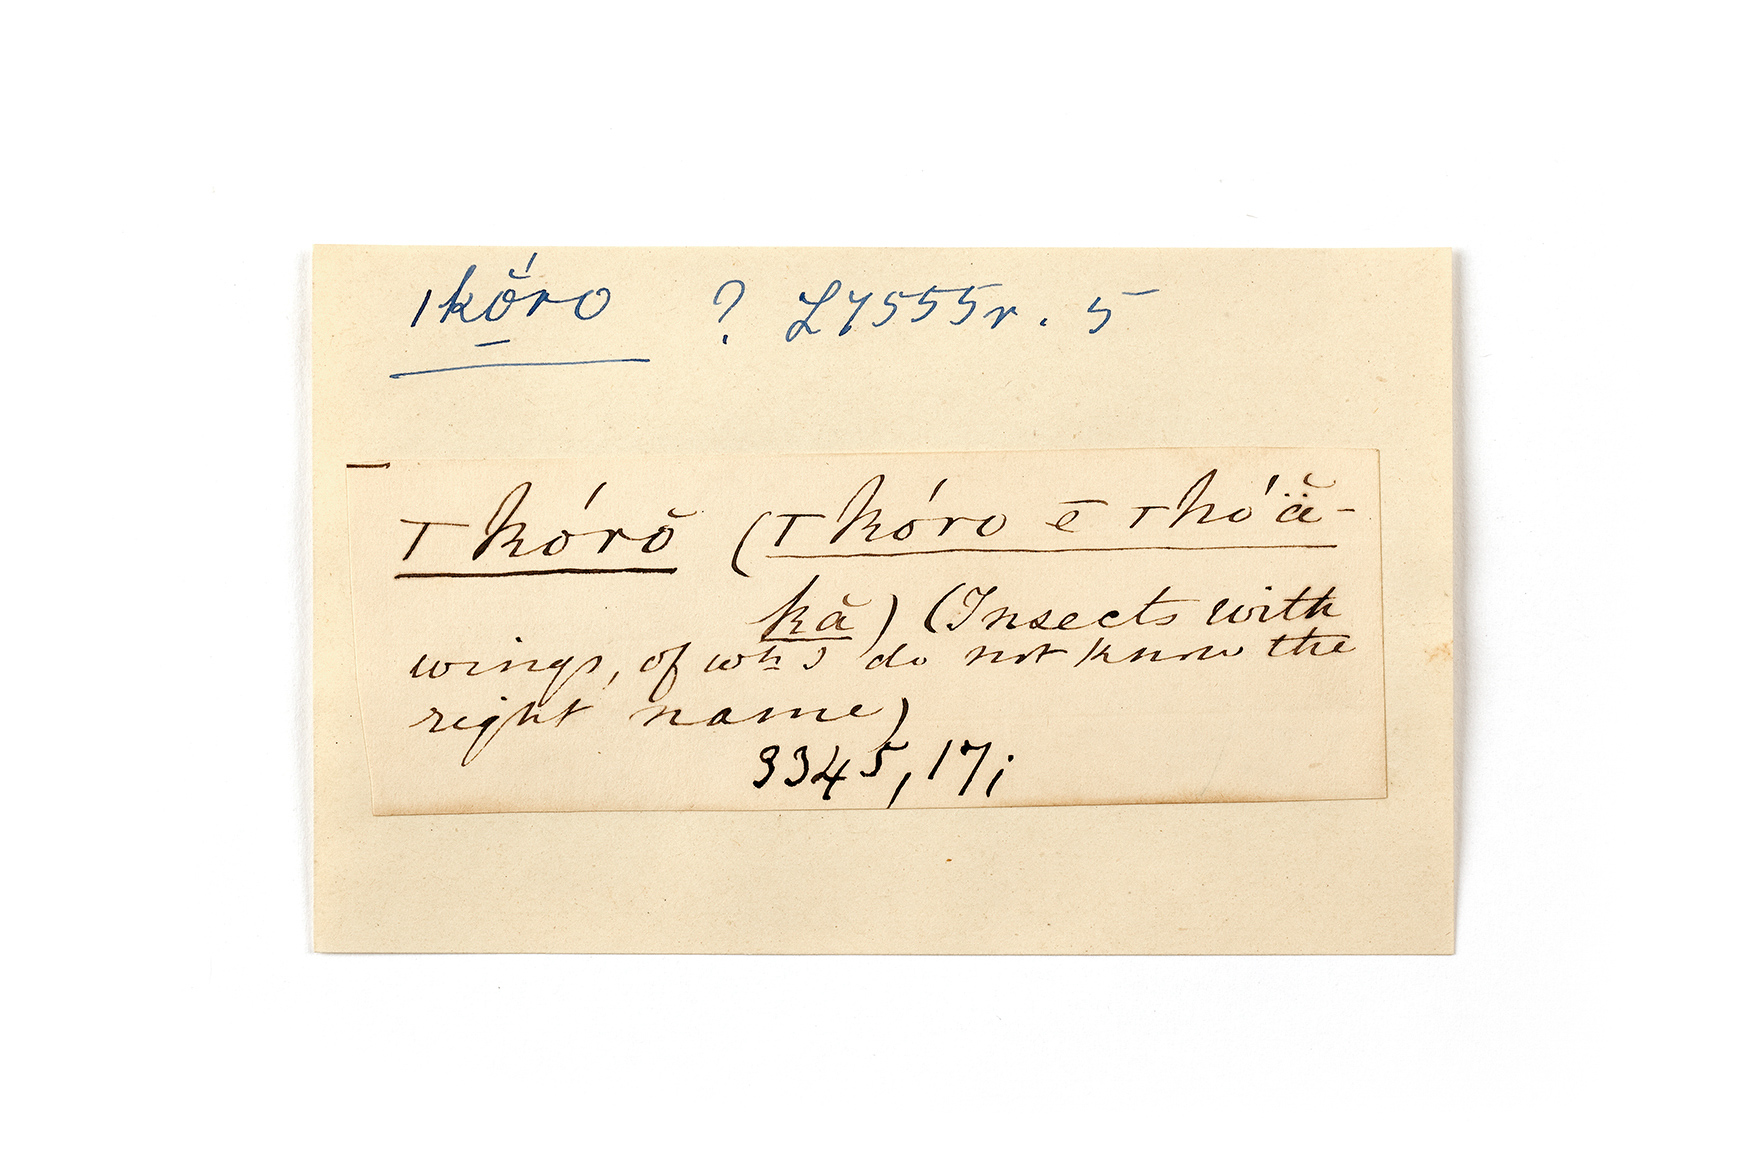 ıkṓ̆ro ? L7555r. 5
⊤kórŏ (⊤kóro ē ⊤kó'ä̆-
kă) (Insects with
wings, of wh I do not know the
right name)
3345, 17;